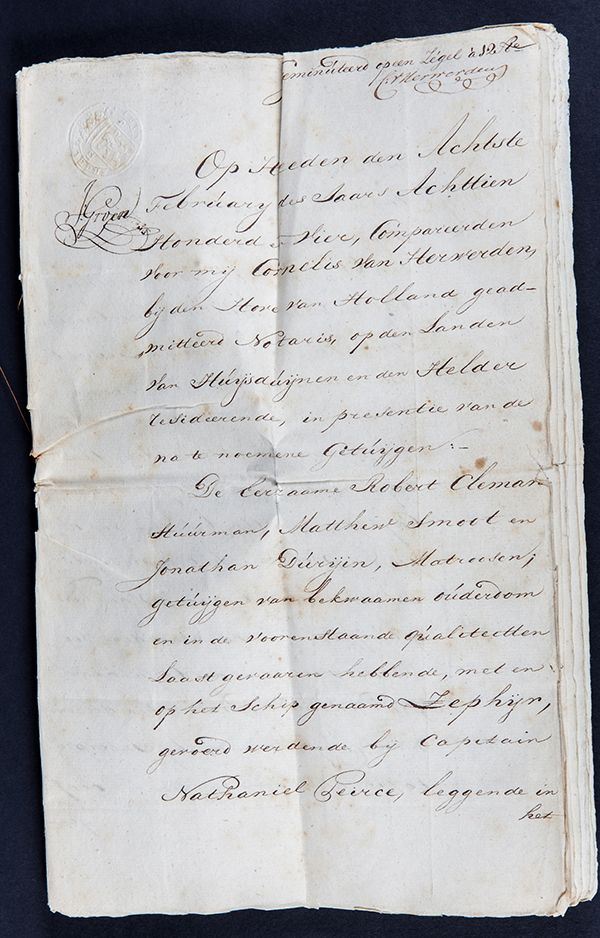 Geminuteerd op een Zégel à 12 St.
C.V.Herwerden
J. Groen
Op Heeden den Achtste
February des Jaars Achttien
Honderd & Vier, Compareerden
voor mij Cornelis van Herwerden,
bij den Hove van Holland gead-
mitteerd Notaris, op den Landen
van Húijsdúijnen en den Helder
resideerende, in presentie van de
na te noemene Getúijgen:-
De Eerzaame Robert Cleman
Stúúrman, Matthew Smoot en
Jonathan Dúrijin, Matroosen;
getúijgen van bekwaamen oúderdom
en in de voorenstaande qúaliteitten
Laast gevaaren hebbende, met en
op het Schip genaamd Zephijr,
gevoerd werdende bij Capitain
Nathaniel Peirce, leggende in
het